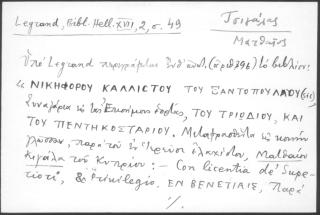 Legrand, Bibl. Hell. XVII, 2, σ. 49
Τσιγάλας
Ματθαῖος
Ὑπὸ Legrand περιγράφεται ἐνθ' ἀνωτ. (ἀριθ 396) τὸ βιβλίον:
« ΝΙΚΗΦΟΡΟΥ ΚΑΛΛΙΣΤΟΥ ΤΟΥ ΞΑΝΤΟΠΟΥΛΟΥ (sic)
Συναξάρια εἰς τὰς Ἐπισήμους ἑορτὰς, ΤΟΥ ΤΡΙΩΔΙΟΥ, ΚΑΙ
ΤΟΥ ΠΕΝΤΗΚΟΣΤΑΡΙΟΥ. Μεταφρασθέντα εἰς κοινὴν
γλῶσσαν, παρὰ τοῦ ἐν ἱερεῦσι ἐλαχίστου, Ματθαίου
Κιγάλα τοῦ Κυπρίου: – Con licentia de' Supe-
riori, & Privilegio. ΕΝ ΒΕΝΕΤΙΑΙΣ, Παρὰ
·/.